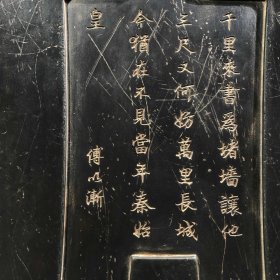 千里来書爲堵墻讓他
三尺又何妨萬里長城
今猶在不見當年秦始
皇
傅以漸